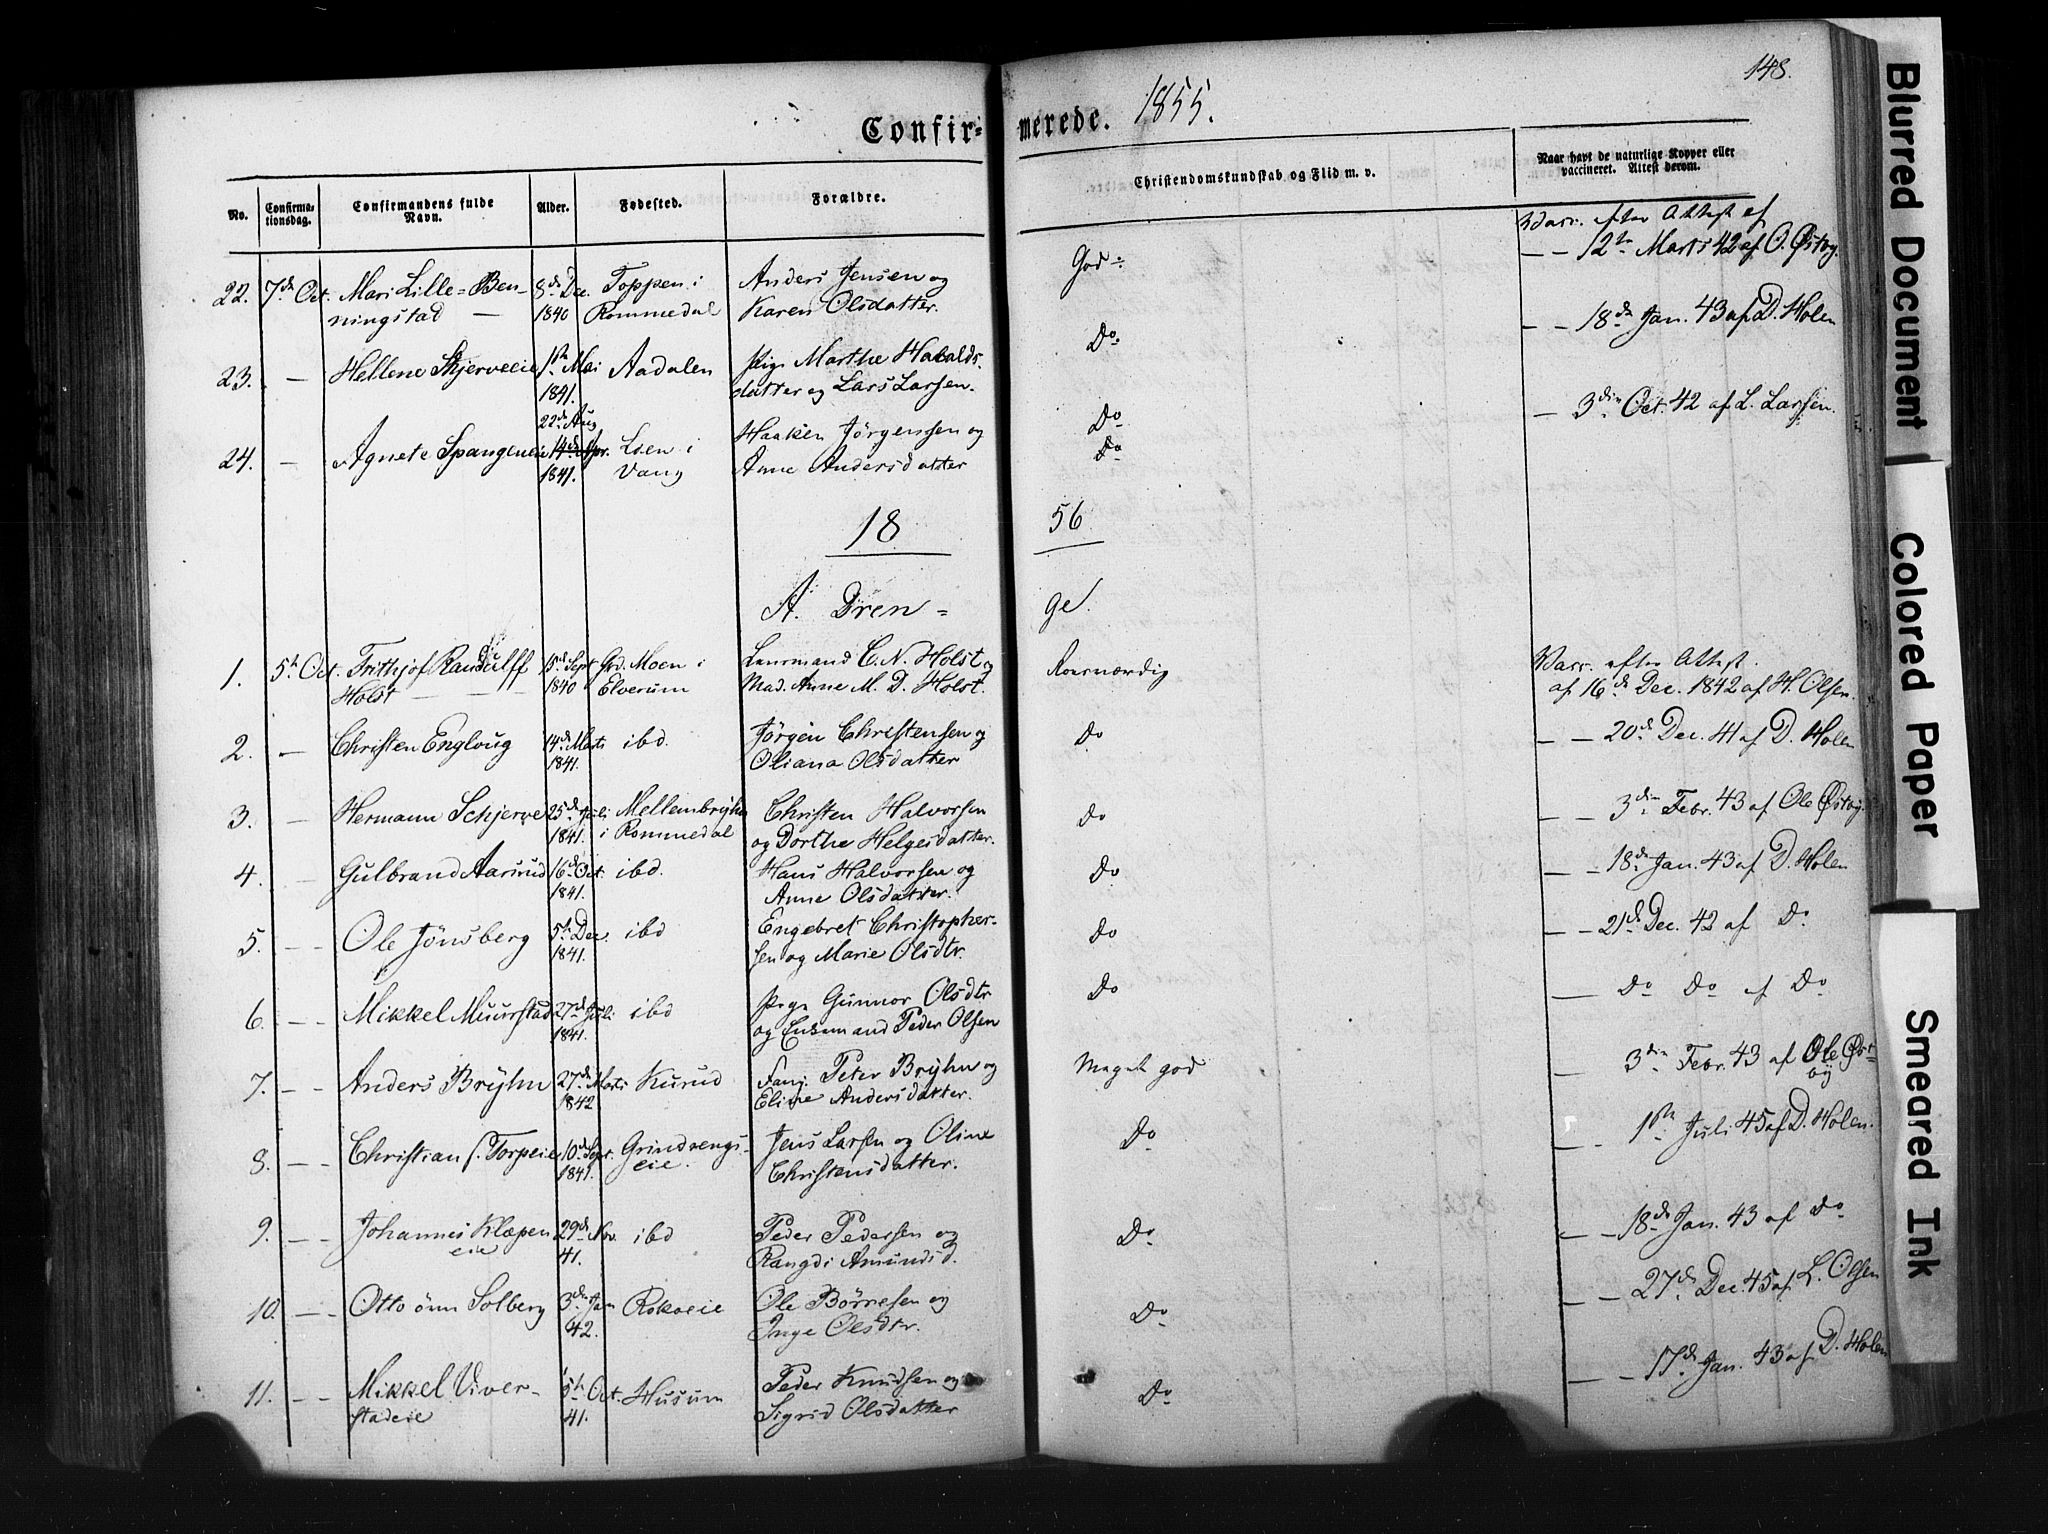 148.
Confir- merede. 1855.
No. Confirma-tionsdag. Confirmandens fulde Navn. Alder. Fødested. Forældre. Christendomskundskab og Flid m. v. Naar havt de naturlige Kopper eller vaccineret. Attest derom.
Vacc. efter Attest af
22. 7de Oct. Mari Lille-Ben- 8de Dec. Toppen i Anders Jensen og God. — — 12te Marts 42 af O. Østby.
ningstad — 1840 Rommedal Karen Olsdatter.
23. — Hellene Skjerveeie 1ste Mai Aadalen Pige Marthe Haralds- Do. — — 18de Jan. 43 af D. Holen
1841. datter og Lars Larsen.
22de Aug
24. — Agnete Spangeneie 14de Apr. Lien i Haaken Jörgenssen og Do — 3die Oct. 42 af L. Larsen.
1841. Vang Anne Andersdatter Do
18 56
A. Dren- ge.
1. 5te Oct. Frithjof Randulff 15de Sept Grd. Moen i Lensmand C. N. Holst og Roesværdig Vacc. efter Attest.
Holst — — — 1840 Elverum Mad. Anne M. D. Holst. af 16de Dec. 1842 af H. Olsen.
2. — Christen Engloug 14de Marts ibd. Jörgen Christensen og Do — — 20de Dec. 41 af D. Holen
1841. Oliana Olsdatter
3. — Hermann Schjerve 25de Juli Mellembryhn Christen Halvorsen Do — — 3die Febr. 43 af Ole Østby.
1841. i Rommedal og Dorthe Helgesdatter.
4. — Gulbrand Aasrud 16de Oct. ibd. Hans Halvorsen og Do — — 18de Jan. 43 af D. Holen
1841. Anne Olsdatter.
5. — — Ole Jönsberg 5te Dec. ibd Engebret Christopher- Do — — 21de Dec. 42 af Do
1841. sen og Marie Olsdtr.
6. — — Mikkel Muurstad 27de Juli ibd Pige Gunnor Olsdtr Do — Do Do af Do
1841. og Enkemand Peder Olsen
7. — — Anders Bryhn 27de Marts Kurud Fanj. Peter Bryhn og Meget god — 3die Febr. 43 af Ole Øst-
1842 Eline Andersdatter. by
8. — — Christian s. Torpeie 10de Sept. Grindvengs- Jens Larsen og Oline Do — — 1ste Juli 45 af D. Holen.
1841. eie. Christensdatter.
9. — — Johannes Klæpen 29de Nov. ibd Peder Pedersen og Do — — 18de Jan. 43 af Do
eie 41. Rangdi Amundsd.
10. — — Otto önn Solberg 3die Jan Rokoeie Ole Börresen og Do — — 27de Dec. 45 af L. Olsen
42. Inge Olsdtr.
11. — — Mikkel Viver- 5te Oct. Husum Peder Knudsen og Do — — 17de Jan. 43 af D. Holen
stadeie 41. Sigrid Olsdatter
Blurred Document
Colored Paper
Smeared Ink